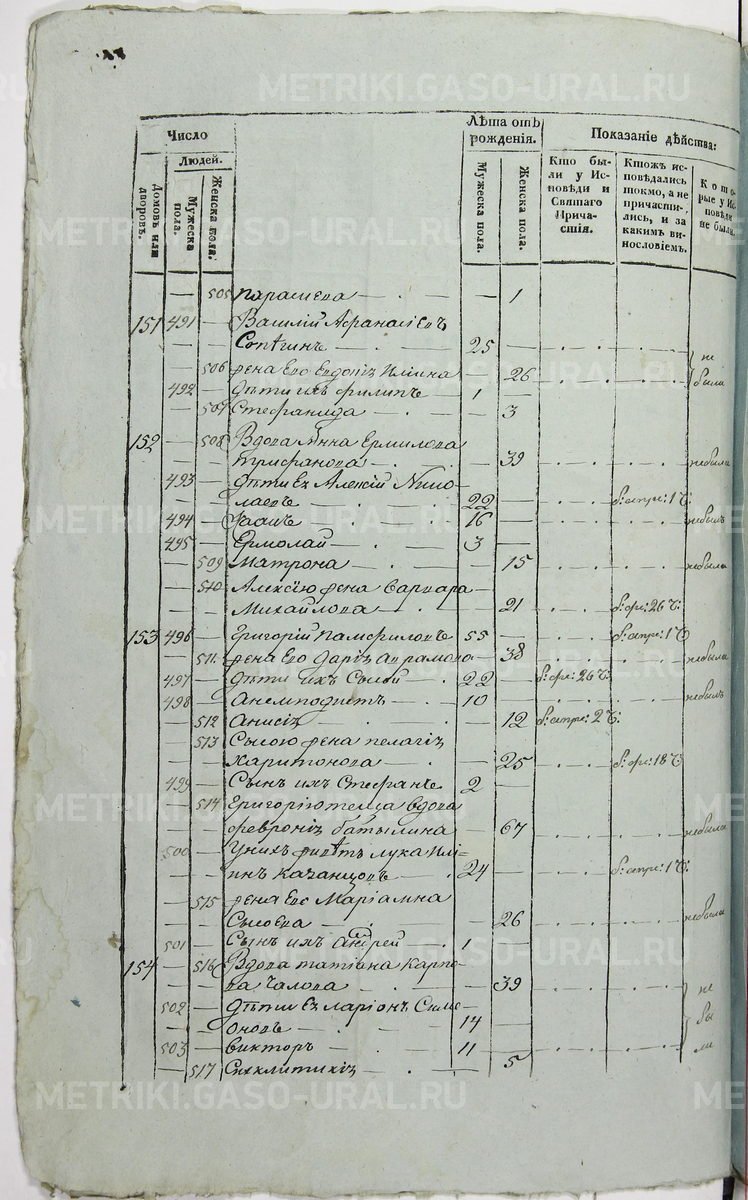 METRIKI.GASO-URAL.RU
Число
Людей.
Домовъ или дворовъ.
Мужеска пола.
Женска пола.
Лѣта отъ рожденія.
Мужеска пола.
Женска пола.
Показаніе дѣйства:
Кто бы-
ли у Ис-
повѣди и
Святаго
Прича-
стія.
Ктожъ ис-
повѣдались
токмо, а не
причасти-
лись, и за
какимъ ви-
нословіемъ.
Кото-
рые у Ис-
повѣди
не были.
505 Параскева 1
151 491 Василій Афанасіевъ
25
506 жена Его Евдокія Иліина 26 не
492 Дѣти ихъ Филипъ 1 были
507 Стефанида 3
152 508 Вдова Анна Ермилова
Трифанова 39 небыла
493 Дѣти Ея Алексій Нико-
лаевъ 22 б: апре: 1 Ч:
494 Исаакъ 16 небылъ
495 Ермолай 3
509 Матрона 15 небыла
510 Алексію жена Варвара
Михайлова 21 26 Ч:
153 496 Григорій Памфиловъ 55 б: апре: 1 Ч
511 жена Его Дарія Аврамова 38 небыла
497 Дѣти ихъ Сысой 22 26 Ч:
498 Анемподистъ 10 небылъ
512 Анисія 12 б: апре: 2 Ч:
513 Сысою жена Пелагія
Харитонова 25 18 Ч
499 Сынъ ихъ Стефанъ 2
514 Григорію теща вдова
Февронія Батылина 67 небыла
500 У нихъ живетъ Лука Илі-
инъ Казанцовъ 24 б: апре: 1 Ч:
515 жена Его Маріамна
Сысоева 26 небыла
501 Сынъ ихъ Андрей 1
154 516 Вдова Татіана Карпо-
ва Чалова 39 не
502 Дѣти Ея Ларіонъ Симе-
оновъ 14 бы
503 Викторъ 11 ли
517 Сигклитикія 5